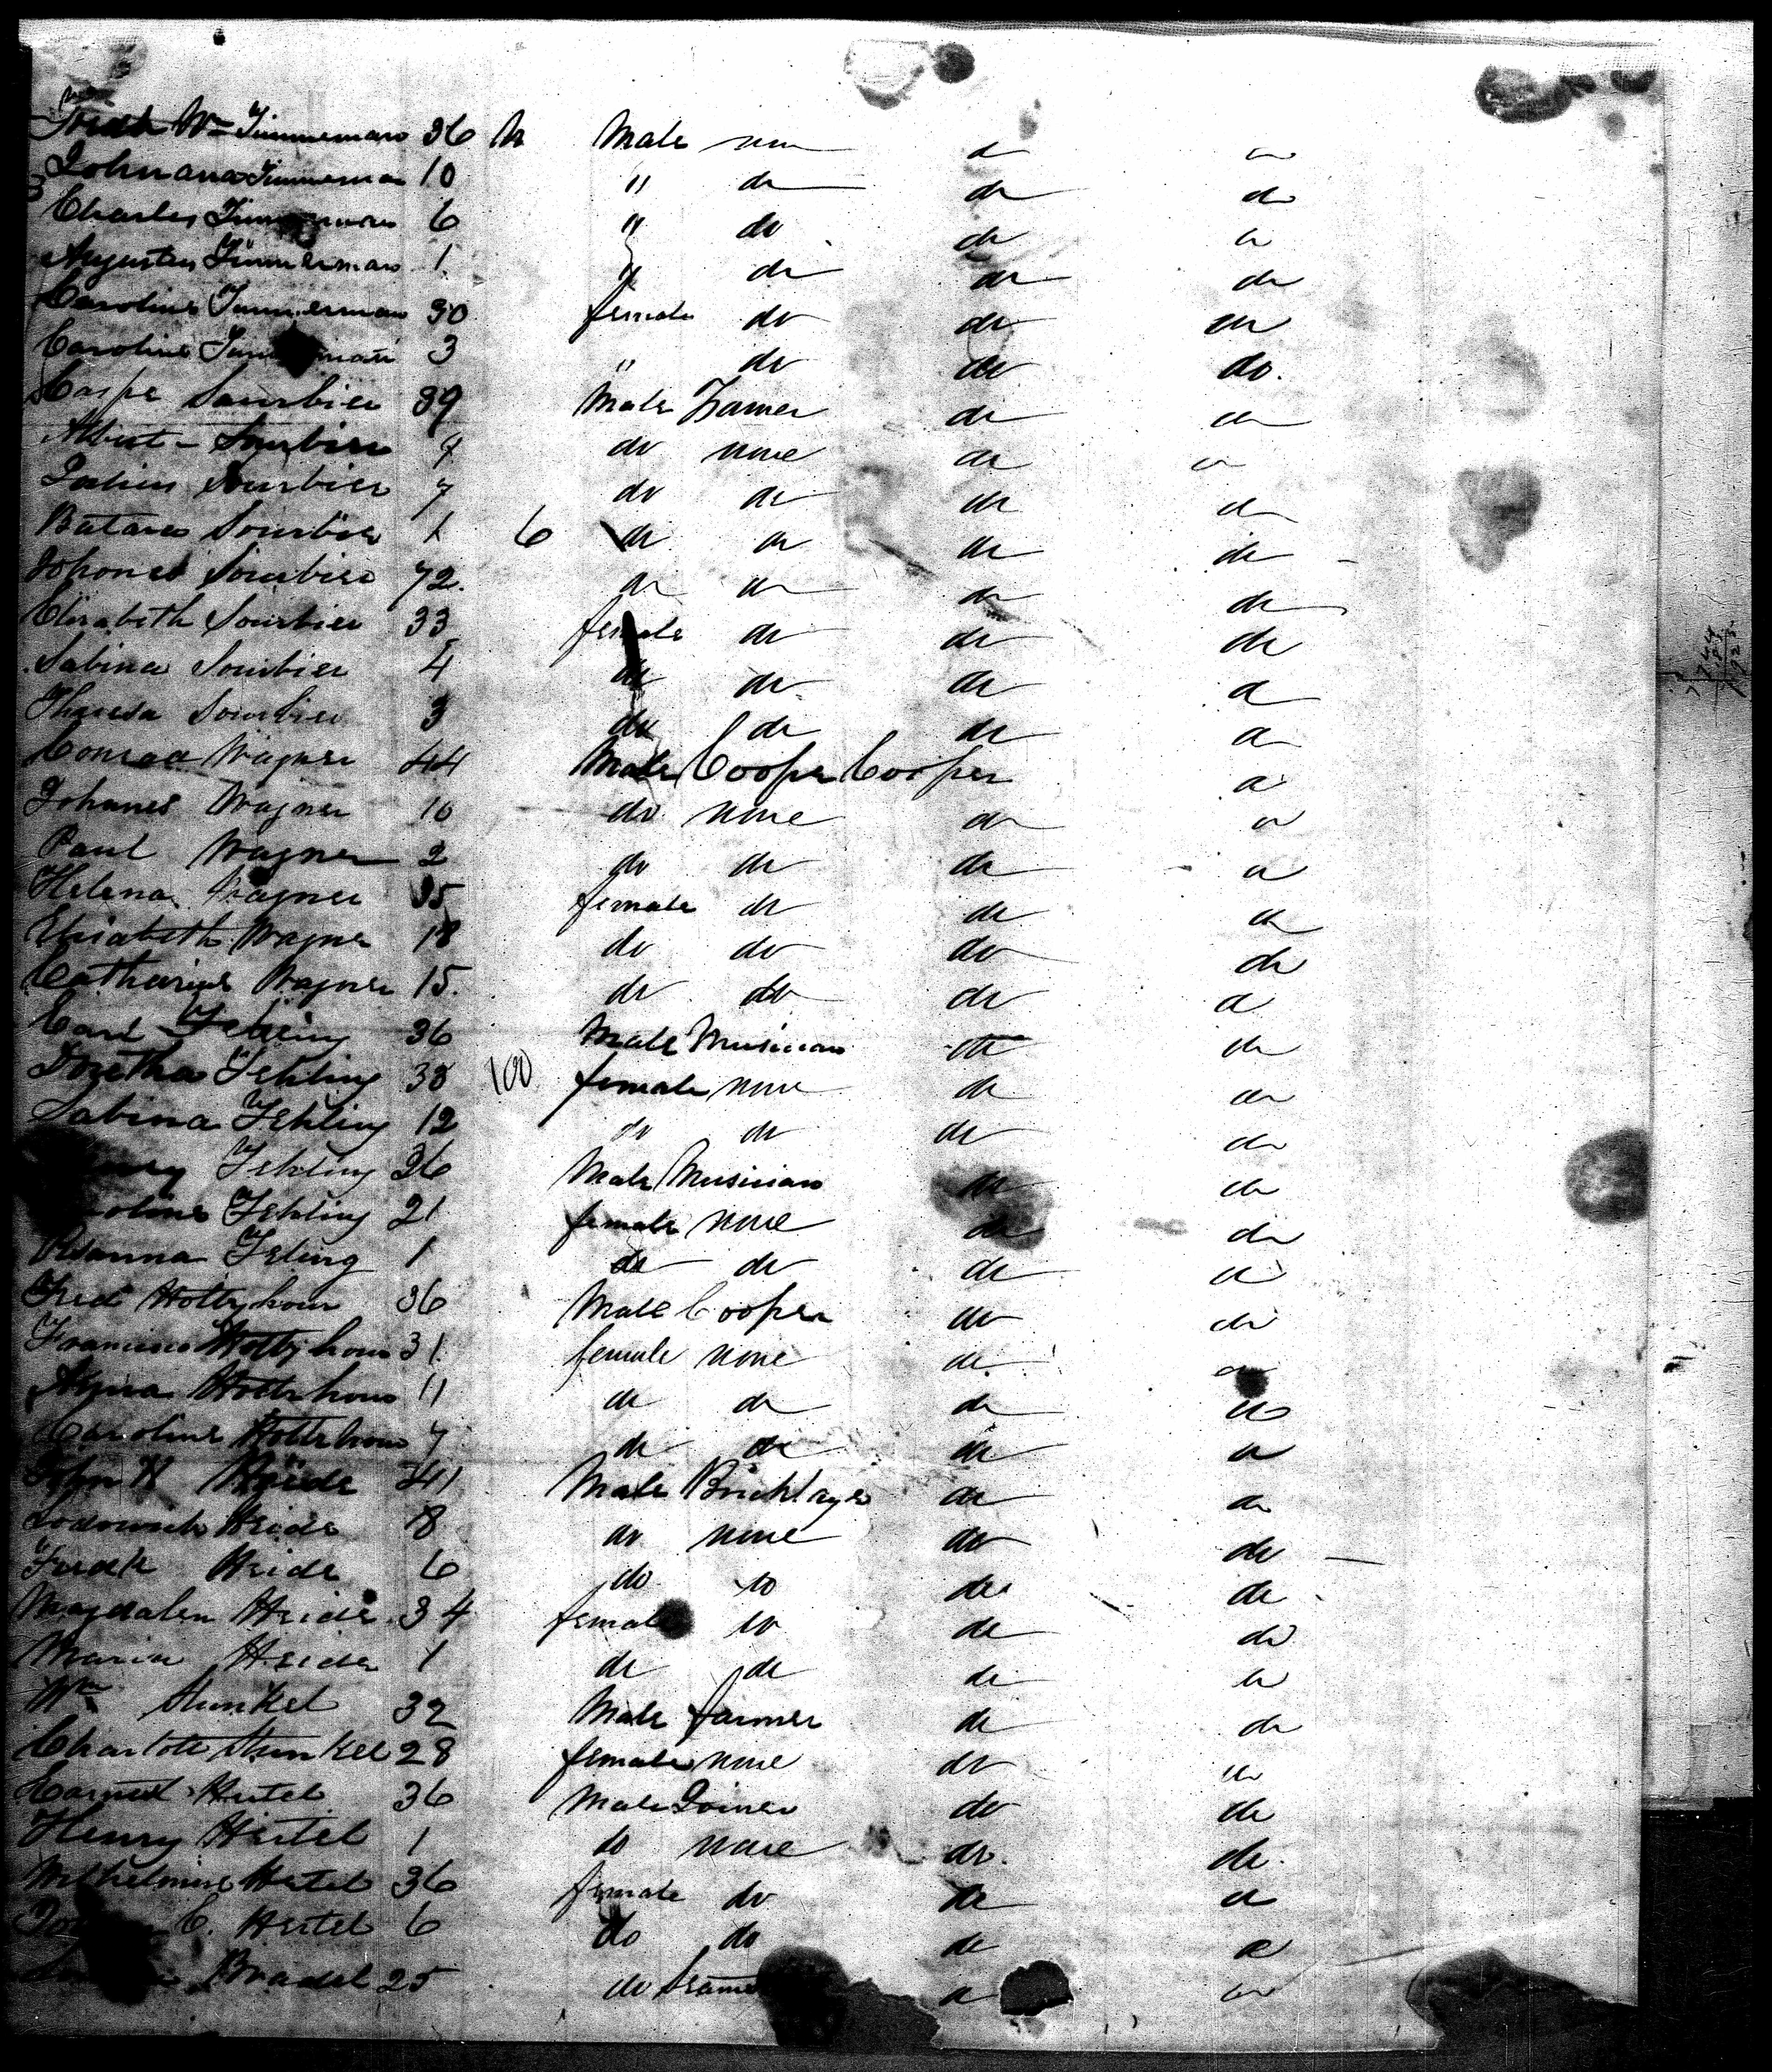 Fredk Wm Timmerman 36 Male none do do
Johnana Timmerman 10 " do do do
Charles Timmerman 6 " do do do
Augustus Timmerman 1 " do do do
Caroline Timmerman 30 female do do do
Caroline Timmerman 3 " do do do.
Caspe Sourbier 39 Male Farmer do do
Albert Sourbier 9 do none do do
Julius Sourbier 7 do do do do
Sourbier 1 6 do do do do
Johones Sourbier 72. do do do do
Elisabeth Sourbier 33 female do do do
Sabina Sourbier 4 do do do do
Theresa Sourbier 3 do do do do
Conrad Wagner 44 Male Cooper Cooper do
Johanes Wagner 10 do none do do
Paul Wagner 2 do do do do
Helena Wagner 35 female do do do
Elisabeth Wagner 18 do do do do
Catharine Wagner 15. do do do do
Carl Fehling 36 Male Musician do do
Dorethea Fehling 38 100 female none do do
Sabina Fehling 12 do do do do
Fehling 36 Male Musician do do
Fehling 21 female none do do
Rosanna Feling 1 do do do do
Fred 36 Male Cooper do do
31 female none do do
11 do do do do
Caroline 7 do do do do
John H Heide 41 Male Bricklayer do do
Lodowick Heide 8 do none do do
Fredk Heide 6 do do do do
Magdalen Heide 34 female do do do
Maria Heide 1 do do do do
Wm Stunkel 32 Male farmer do do
Charlote Stunkel 28 female none do do
Earnest Hertel 36 Male Joiner do do
Henry Hertel 1 do none do. do.
Wilhelmine Hertel 36 female do do do
C. Hertel 6 do do do do
Bradel 25 do do do